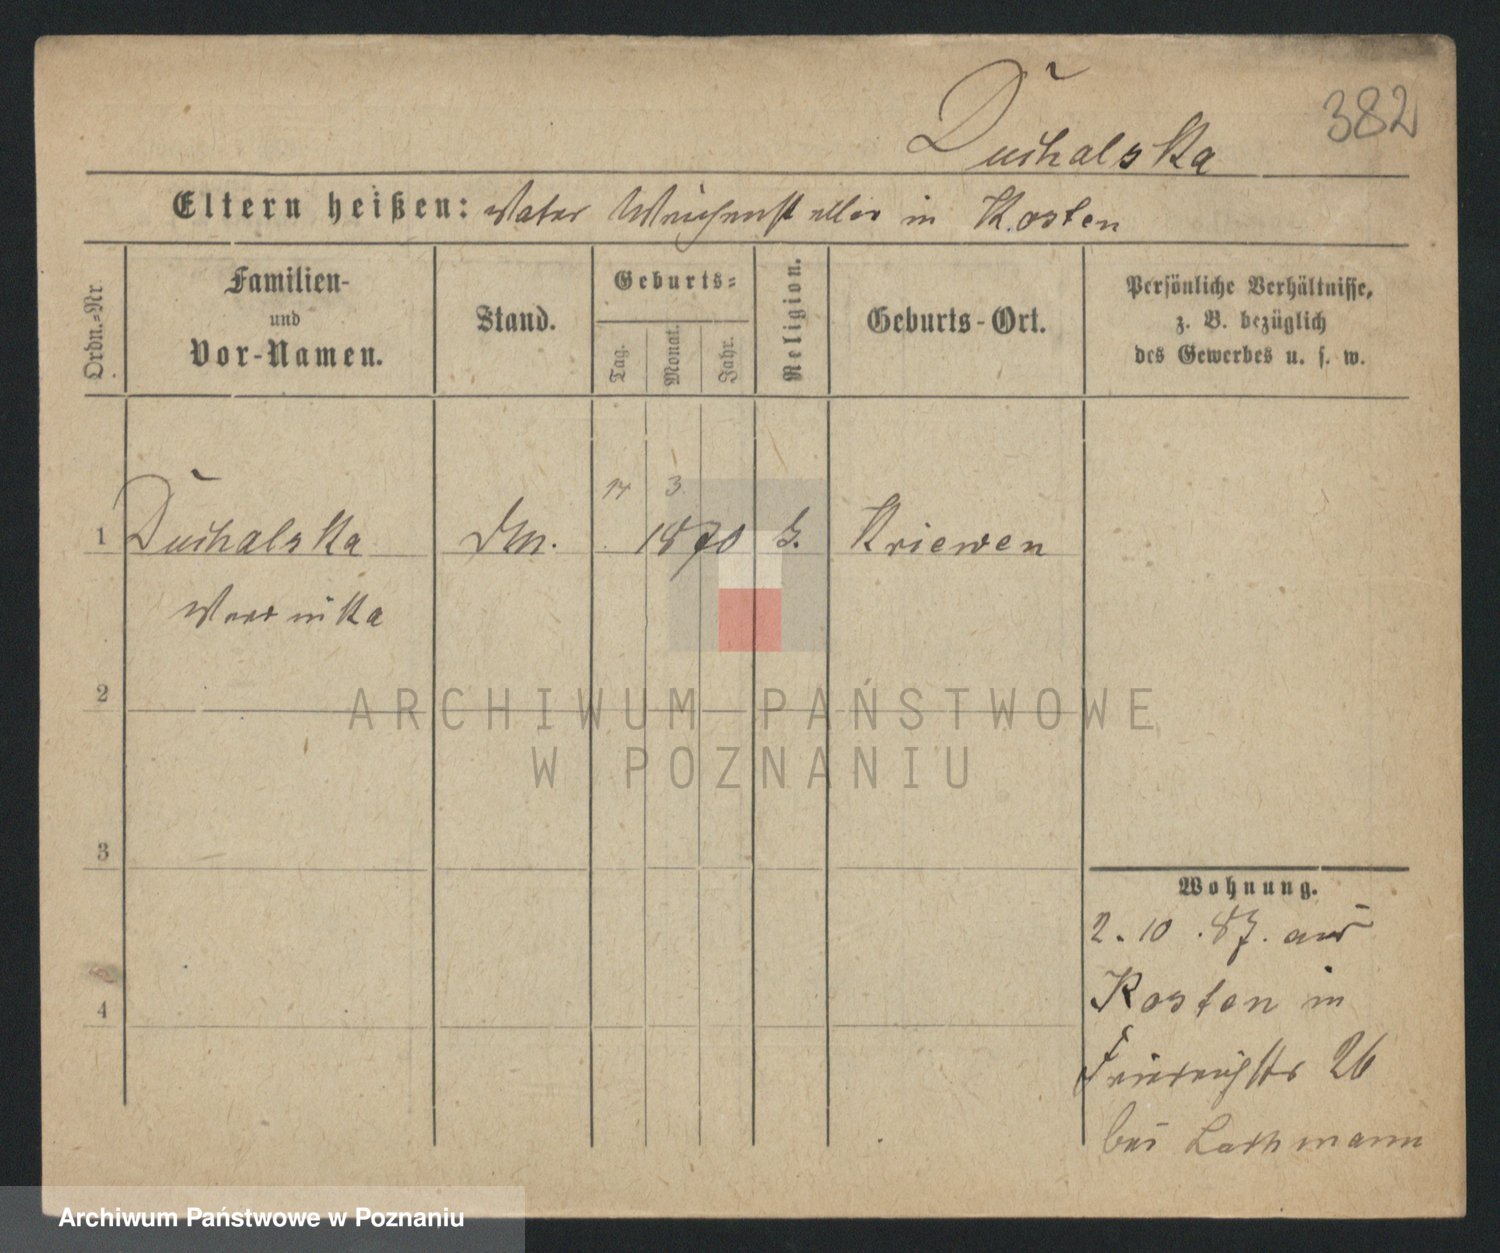 382
Duchalska
Eltern heißen: Vater Weichensteller in Kosten
Ordn.-Nr
Familien-
und
Vor-Namen.
Stand.
Geburts-
Tag.
Monat.
Jahr.
Religion.
Geburts-Ort.
Persönliche Verhältnisse,
z. B. bezüglich
des Gewerbes u. s. w.
14 3
1 Duchalska 1870 Kriewen
Veronika
2
3
4
Wohnung.
2.10.87. aus
Kosten in
Friedrichstr 26
bei Lachmann
ARCHIWUM PAŃSTWOWE
W POZNANIU
Archiwum Państwowe w Poznaniu